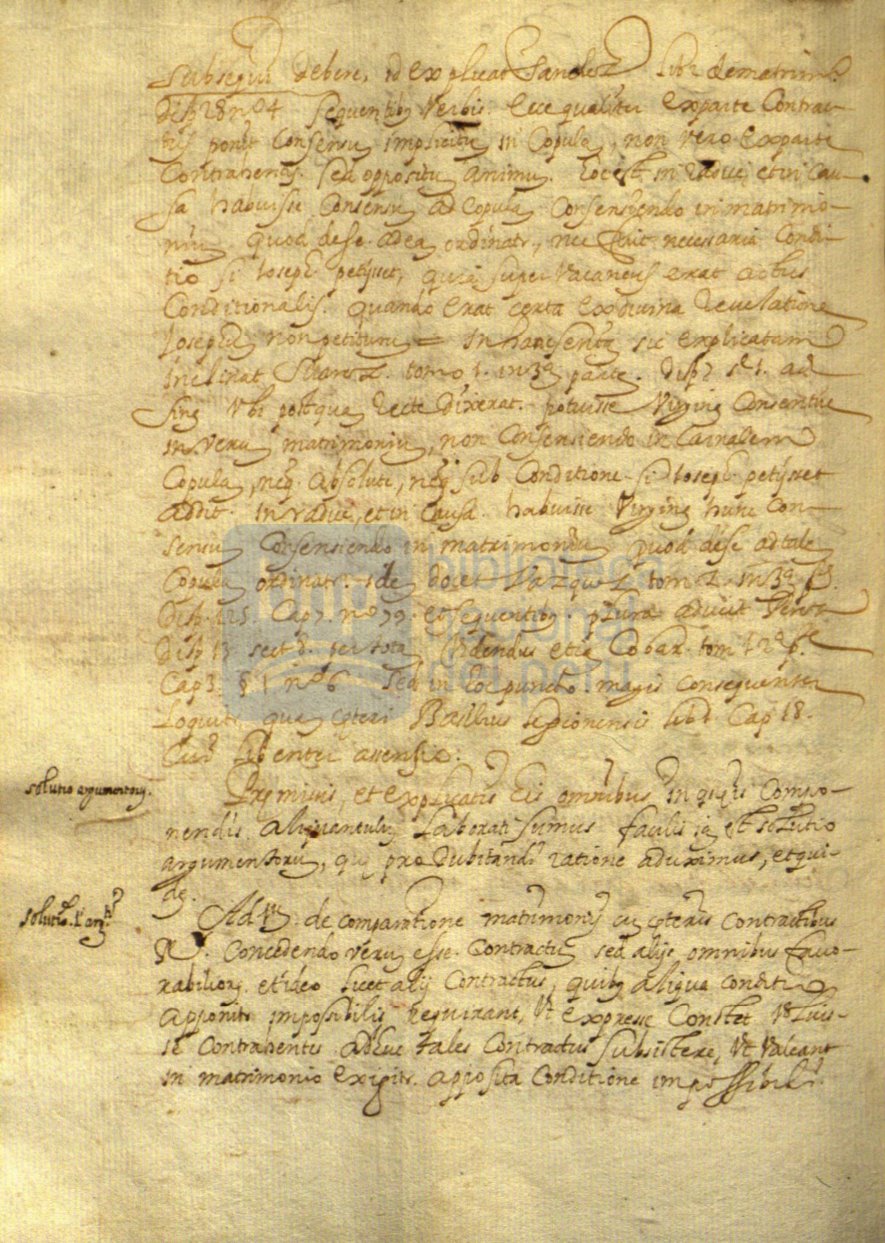 subsequi debere, id explicat Sanchez lib. 2 de matrim.
disp 28 nº 4 sequentibꝰ verbis. Ecce qualiter ex parte Contrac-
tus ponit Consensũ implicitũ in Copulã, non vero ex parte
Contrahentis. sed oppositũ animũ. hoc est in radice et in Cau-
sa habuisse Consensũ ad Copulã Consentiendo in matrimo-
niũ quod de se ad eã ordinatr., nec fuit necessaria Condi-
tio si Ioseph petijsset, quia supervacaneus erat actus
Conditionalis. quando erat certa ex divina revelatione
Iosephũ non petiturũ = In hanc sentã sic explicatam
inclinat Suarez. tomo 2. in 3ã parte. disp 7 sc 1. ad
finẽ ubi postquã recte dixerat. potuisse Virginẽ Consentire
in verũ matrimoniũ, non Consensiendo in Carnalem
Copulã, neq absolute, neq sub Conditione si Ioseph petijsset
addit. in radice, et in Causa habuisse Virginẽ hunc Con-
sensũ Consensiendo in matrimoniũ quod de se ad tale
Copulã ordinatr. idẽ docet Vazquez tom 2 in 3ã p.
Disp. 125. Cap 7. nº 79. et sequentibꝰ. plura aducit
Disp 13 sect 8. per totã Videndus etiã Cobar. tom 1 2ã pte
Cap 3. § 1 nº 6 sed in hoc puncto magis Consequenter
Loquitr quã cæteri Basilius legionensis lib Cap 18.
Cui libenter assensio.
solutio argumentorũ.
Præmissis, et explicatis eis omnibus in quibꝰ Compo-
nendis aliquantulũ Laborati sumus facilis iã est solutio
argumentorũ, quæ pro dubitandi ratione aduximus, et qui-
dẽ.
solutio 1 argti
Ad 1ũ de comparatione matrimonij cũ cæteris Contractibus
R. Concedendo verũ esse Contractũ sed alijs omnibus favo-
rabiliorẽ. et ideo licet alij Contractus, quibꝰ aliqua conditio
apponitr impossibilis requirant, ut expresse Constet voluis-
se Contrahentes adhuc tales Contractus subsistere, ut valeant
in matrimonio exigitr. apposita Conditione impossibili
biblioteca
nacional
del perú